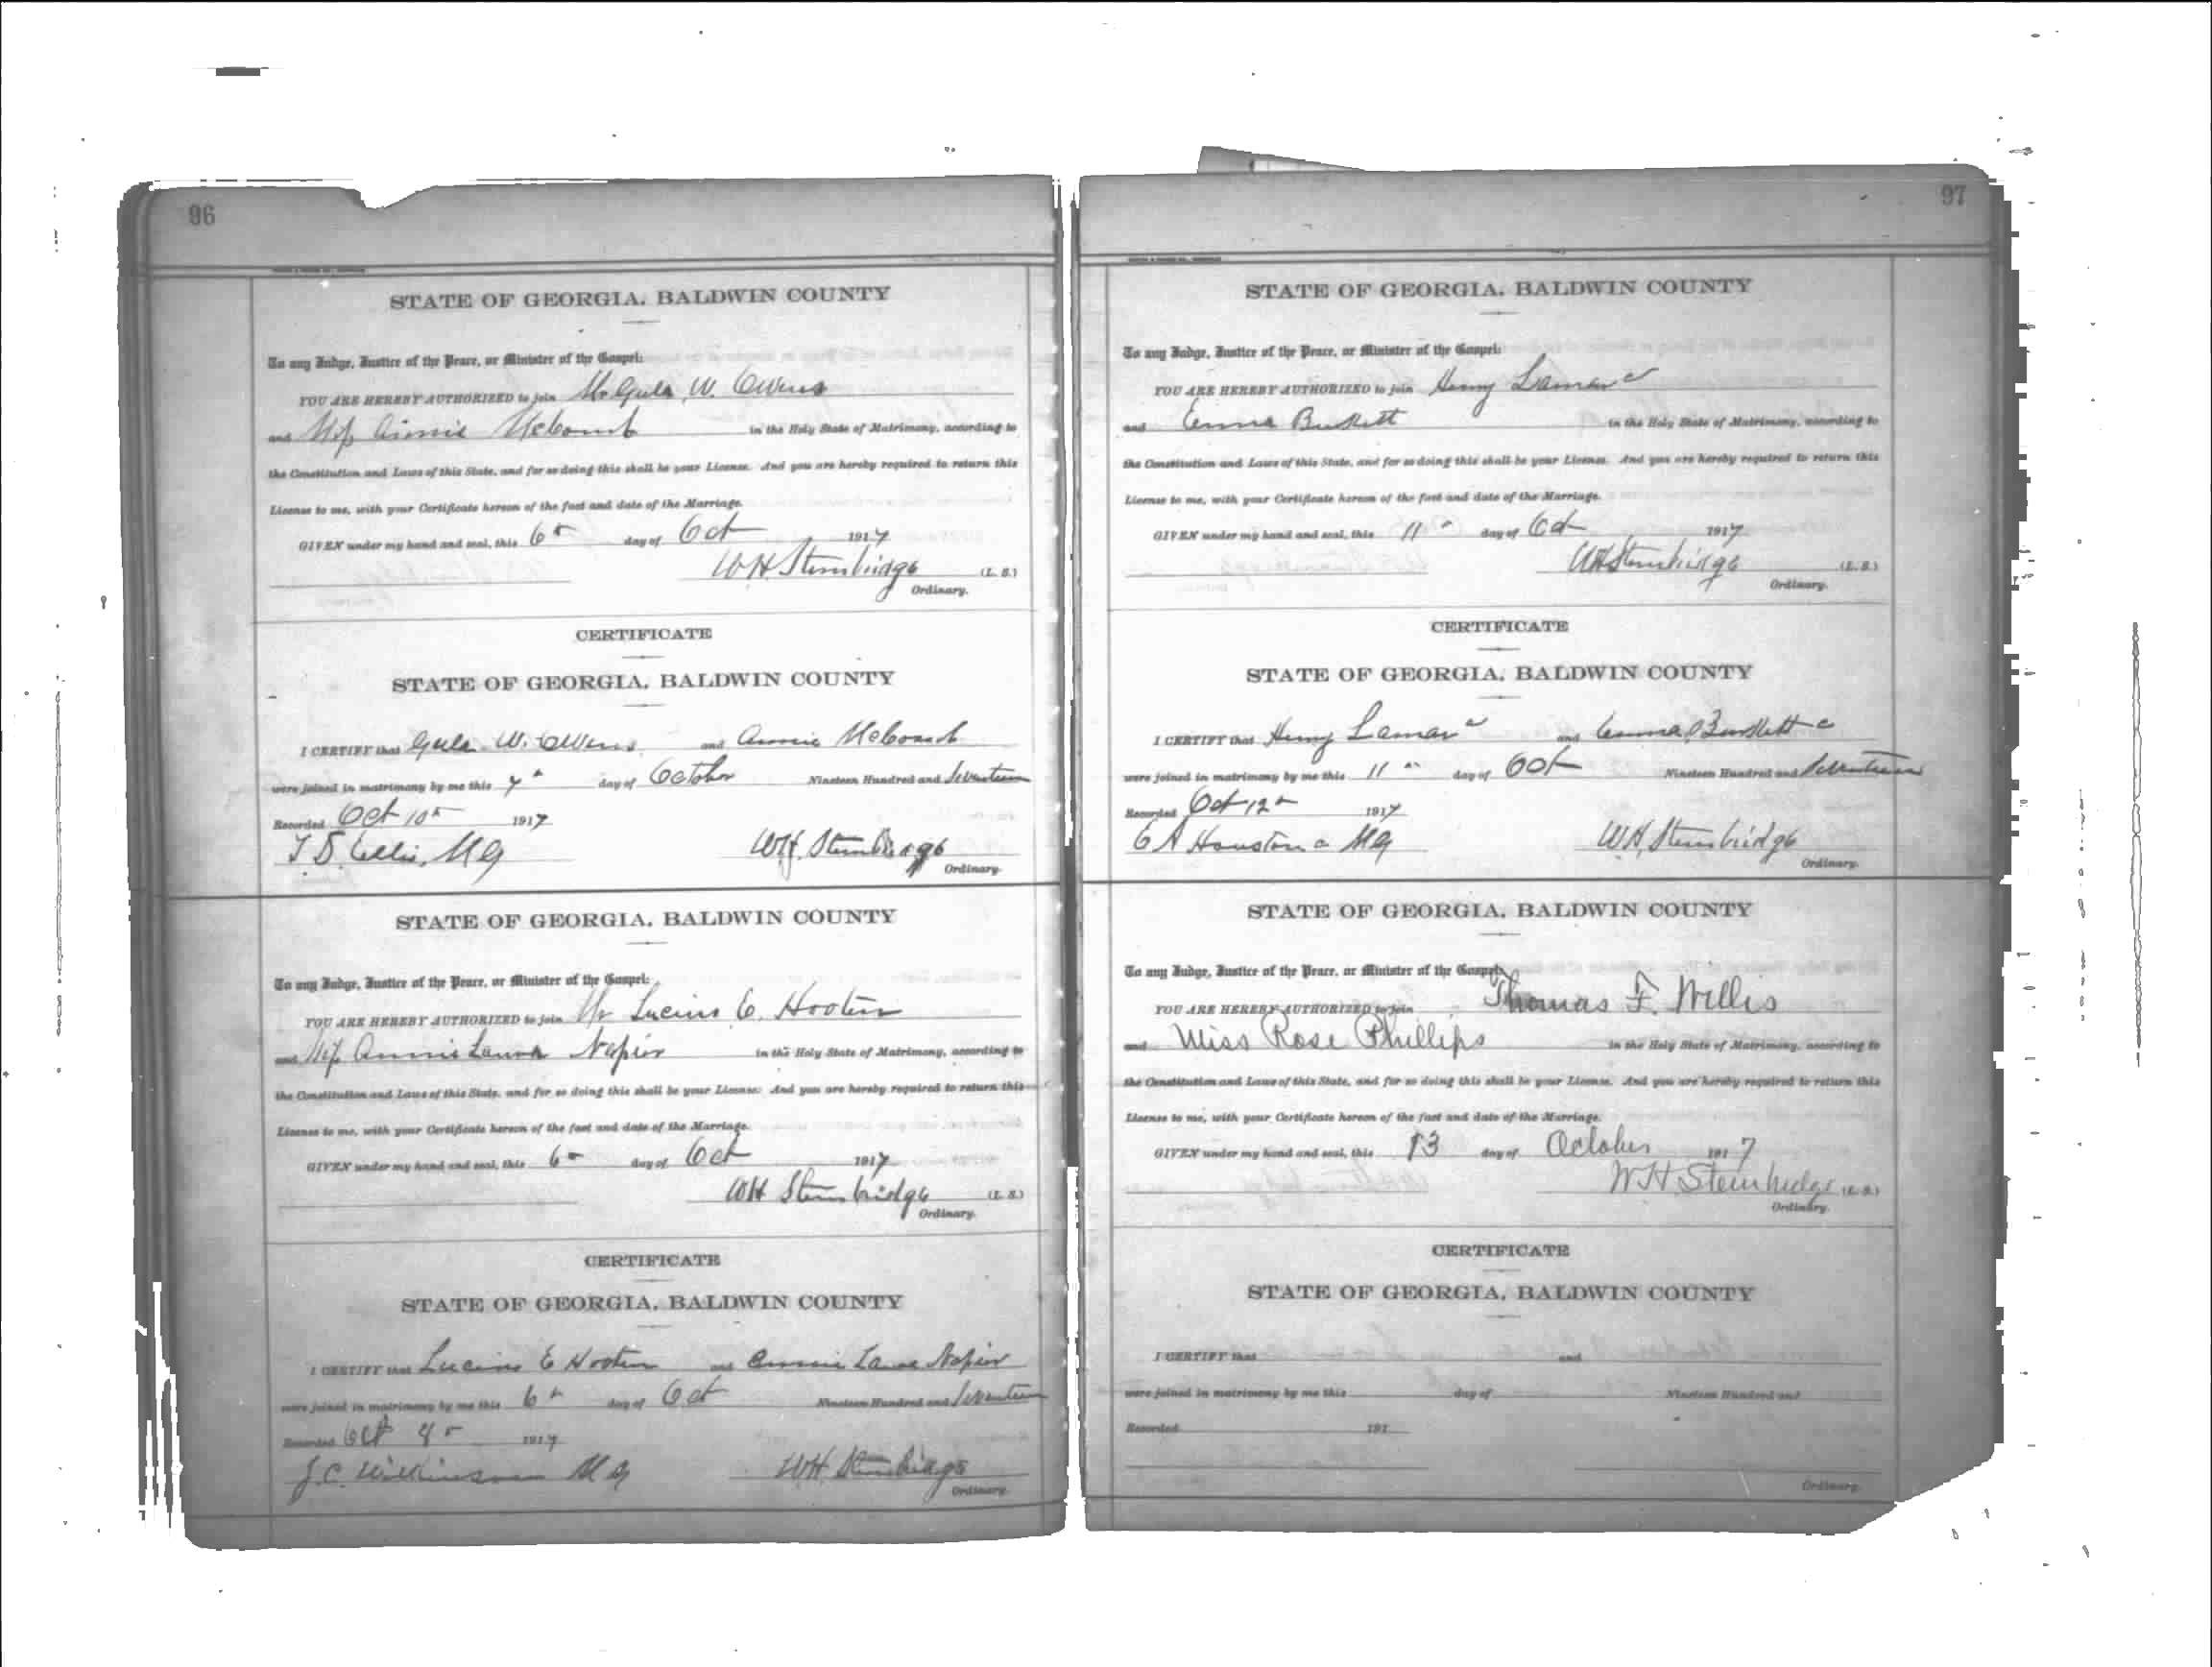 96
STATE OF GEORGIA, BALDWIN COUNTY
To any Judge, Justice of the Peace, or Minister of the Gospel:
YOU ARE HEREBY AUTHORIZED to join Mr Gula W. Owens
and Miss Annie McComb in the Holy State of Matrimony, according to
the Constitution and Laws of this State, and for so doing this shall be your License. And you are hereby required to return this
License to me, with your Certificate hereon of the fact and date of the Marriage.
GIVEN under my hand and seal, this 6th day of Oct 1917
W H Stembridge (L. S.)
Ordinary.
CERTIFICATE
STATE OF GEORGIA, BALDWIN COUNTY
I CERTIFY that Gula W. Owens and Annie McComb
were joined in matrimony by me this 7th day of October Nineteen Hundred and Seventeen
Recorded Oct 10th 1917
T. D. Ellis, MG W.H. Stembridge
Ordinary.
STATE OF GEORGIA, BALDWIN COUNTY
To any Judge, Justice of the Peace, or Minister of the Gospel:
YOU ARE HEREBY AUTHORIZED to join Mr Lucius E. Hooten
and Miss Annie Laura Napier in the Holy State of Matrimony, according to
the Constitution and Laws of this State, and for so doing this shall be your License. And you are hereby required to return this
License to me, with your Certificate hereon of the fact and date of the Marriage.
GIVEN under my hand and seal, this 6th day of Oct 1917
W H Stembridge (L. S.)
Ordinary.
CERTIFICATE
STATE OF GEORGIA, BALDWIN COUNTY
I CERTIFY that Lucius E Hooten and Annie Laura Napier
were joined in matrimony by me this 6th day of Oct Nineteen Hundred and Seventeen
Recorded Oct 1917
J. C. Wilkinson MG W.H. Stembridge
Ordinary.
97
STATE OF GEORGIA, BALDWIN COUNTY
To any Judge, Justice of the Peace, or Minister of the Gospel:
YOU ARE HEREBY AUTHORIZED to join Henry Lamar c
and Emma in the Holy State of Matrimony, according to
the Constitution and Laws of this State, and for so doing this shall be your License. And you are hereby required to return this
License to me, with your Certificate hereon of the fact and date of the Marriage.
GIVEN under my hand and seal, this 11th day of Oct 1917
W H Stembridge (L. S.)
Ordinary.
CERTIFICATE
STATE OF GEORGIA, BALDWIN COUNTY
I CERTIFY that Henry Lamar c and Emma c
were joined in matrimony by me this 11th day of Oct Nineteen Hundred and Seventeen
Recorded Oct 12th 1917
A Houston c MG W.H. Stembridge
Ordinary.
STATE OF GEORGIA, BALDWIN COUNTY
To any Judge, Justice of the Peace, or Minister of the Gospel:
YOU ARE HEREBY AUTHORIZED to join Thomas F. Willis
and Miss Rose Phillips in the Holy State of Matrimony, according to
the Constitution and Laws of this State, and for so doing this shall be your License. And you are hereby required to return this
License to me, with your Certificate hereon of the fact and date of the Marriage.
GIVEN under my hand and seal, this 13 day of October 1917
W H Stembridge (L. S.)
Ordinary.
CERTIFICATE
STATE OF GEORGIA, BALDWIN COUNTY
I CERTIFY that and
were joined in matrimony by me this day of Nineteen Hundred and
Recorded 191
Ordinary.